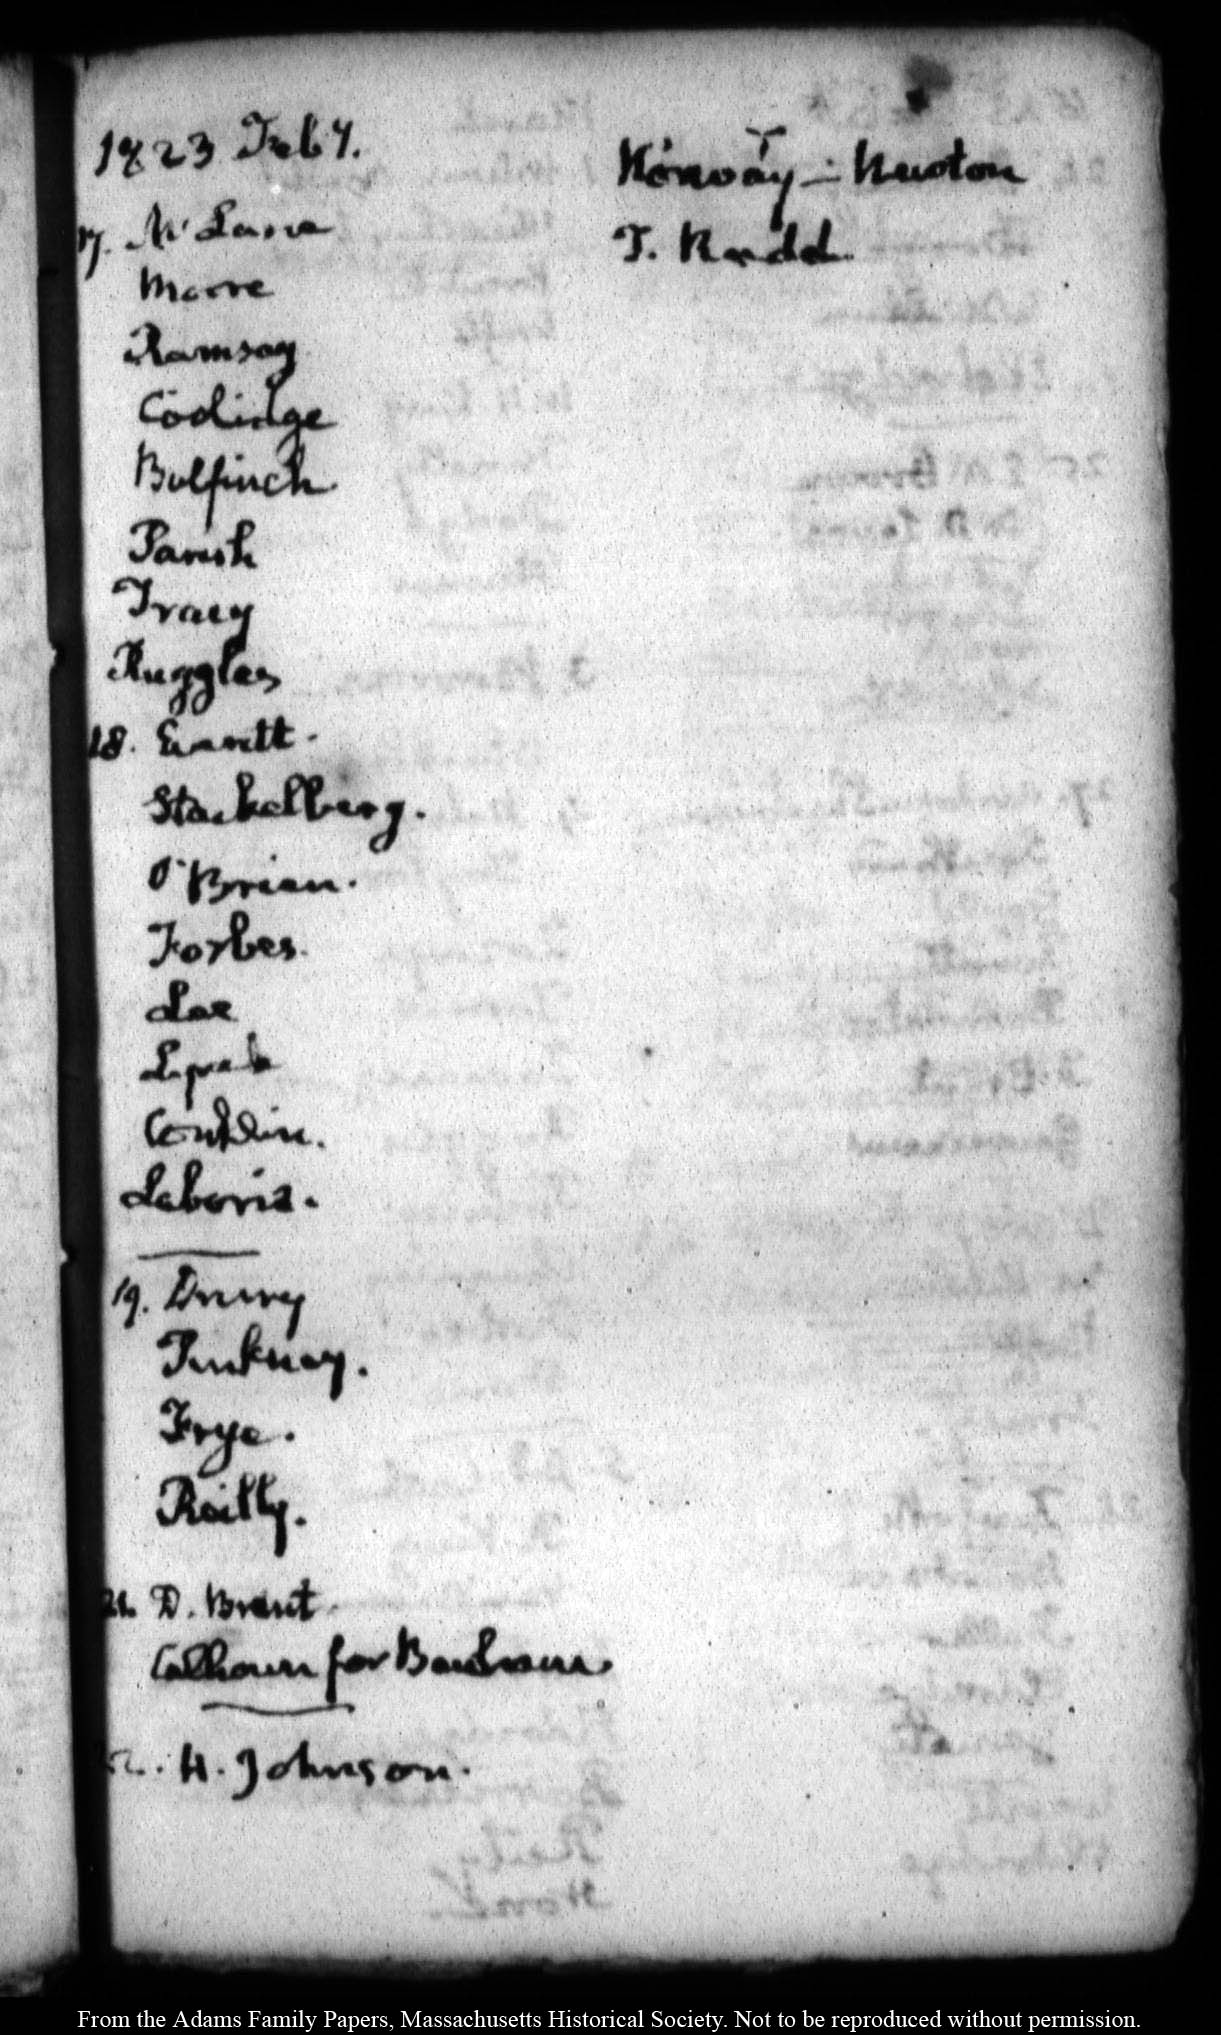 1823 Feb y.
17. McLane
Moore
Ramsay
Codidge
Bulfinch.
Parish
Tracy
Ruggles
18. Everett.
Stackelberg.
O'Brien.
Forbes.
Lee
Conklin.
Laborie.
19. Drury
Pinkney.
Frye.
Reilly.
21. D. Brent.
Calhoun for
22. H. Johnson.
Norway - Newton
T. Rudd.
From the Adams Family Papers, Massachusetts Historical Society. Not to be reproduced without permission.